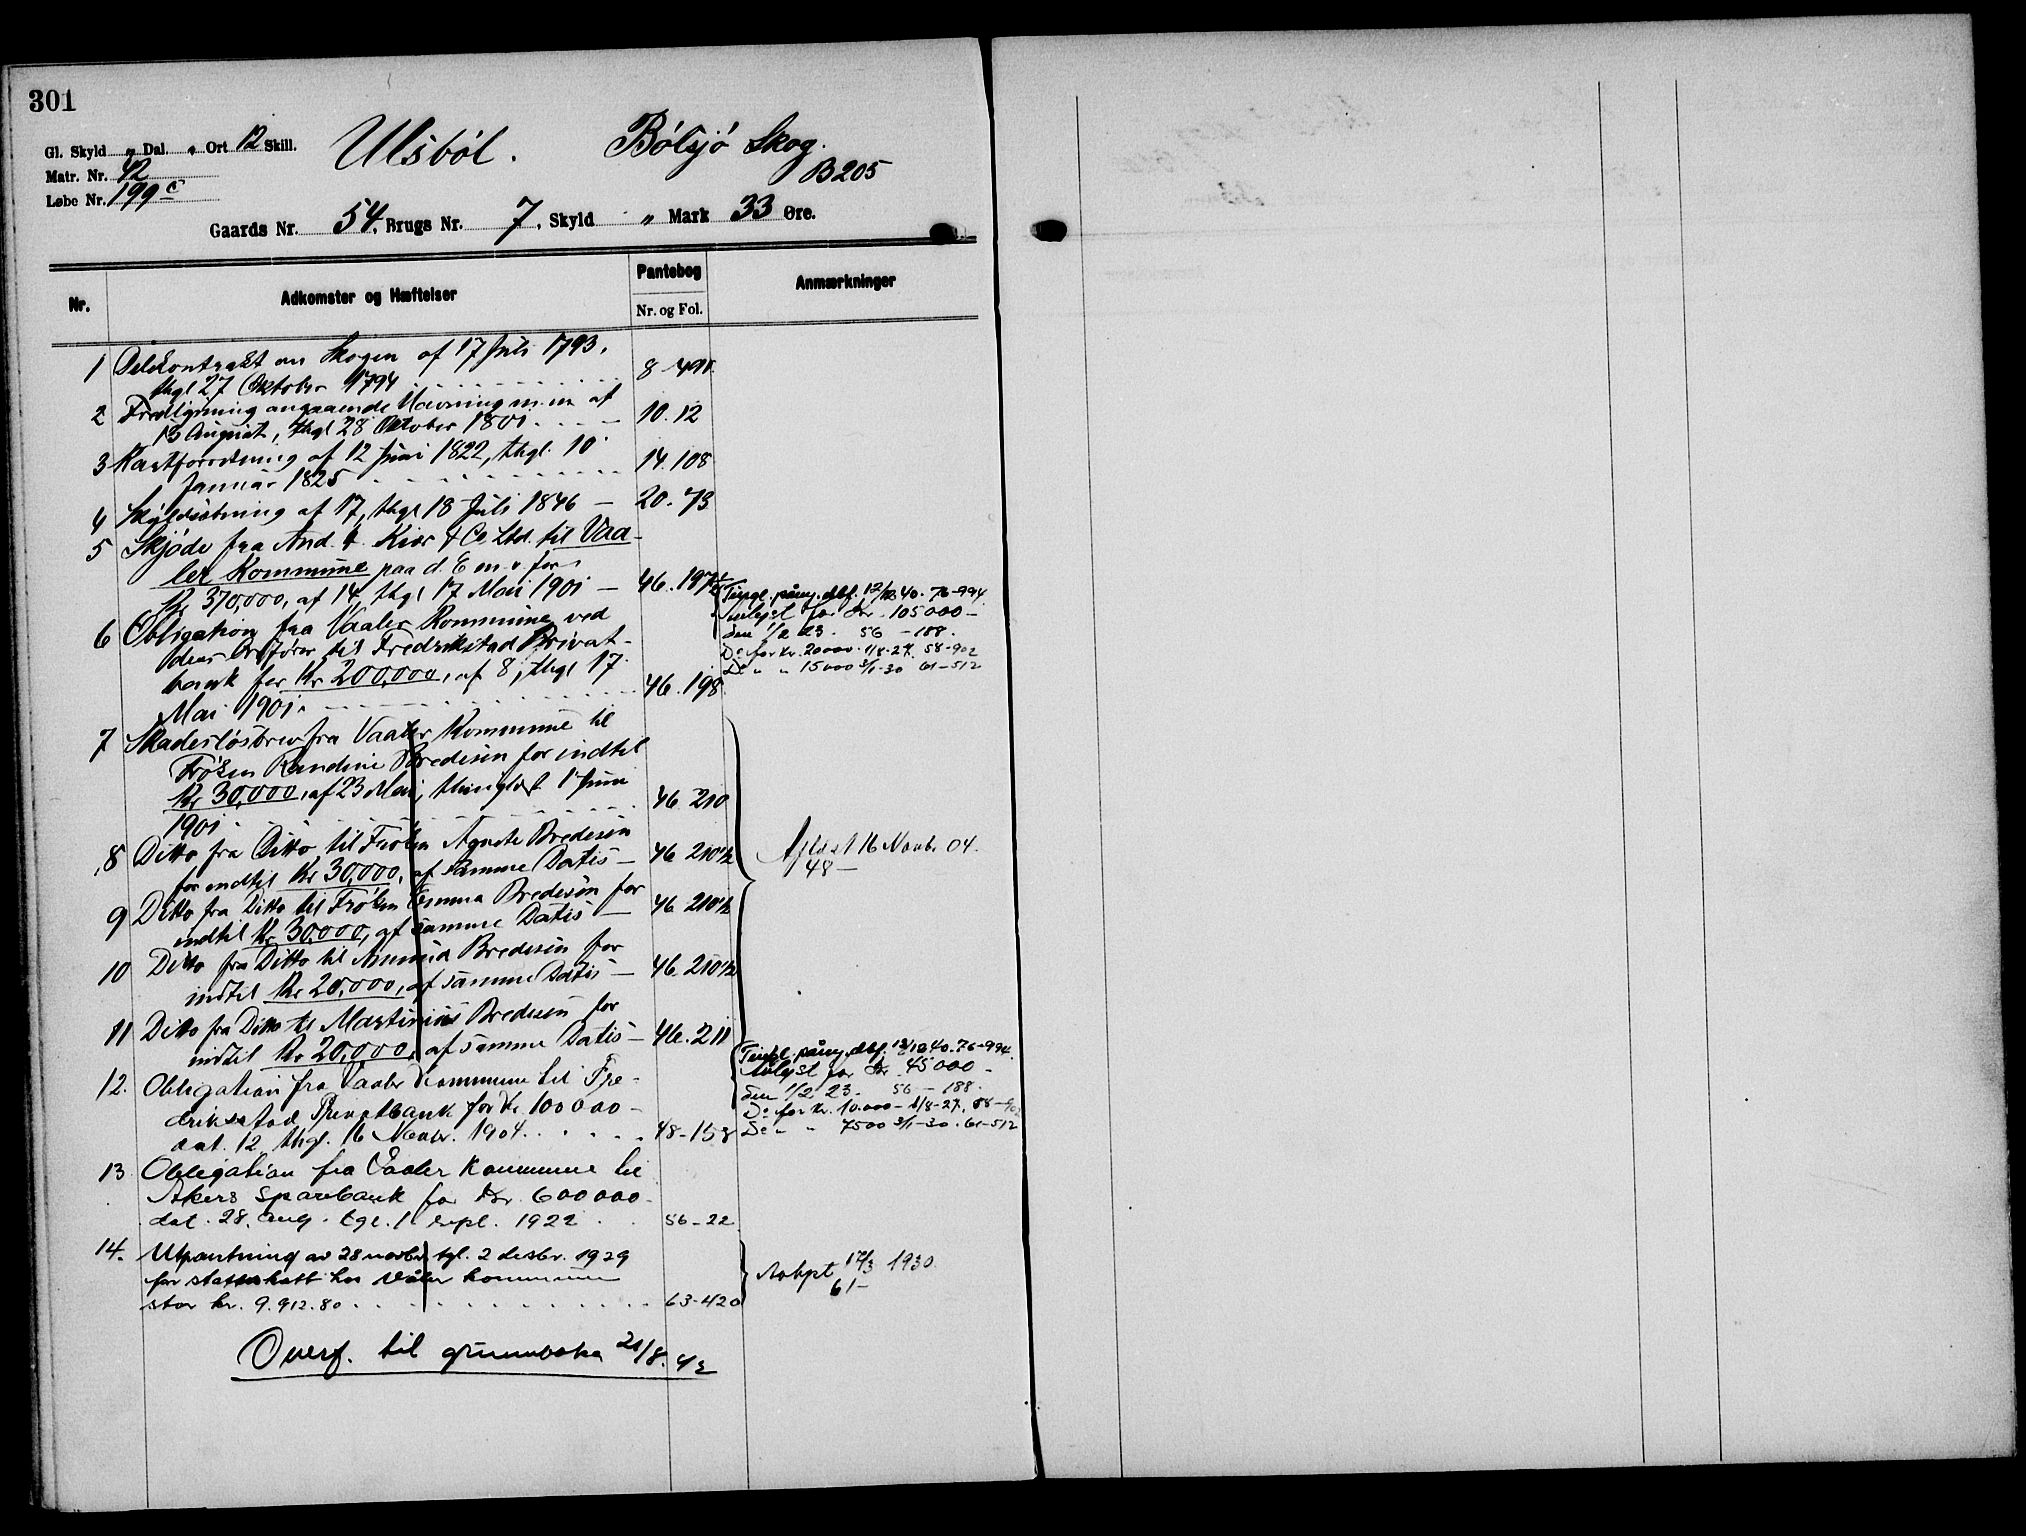 301
Gl. Skyld " Dal. " Ort 12 Skill.
Matr. Nr. 42
Løbe Nr. 199 c
Ulsböl. Bölsjö Skog.
B205
Gaards Nr. 54, Brugs Nr. 7, Skyld " Mark 33 Øre.
Nr. Adkomster og Hæftelser Pantebog Anmærkninger
Nr. og Fol.
1 Delekontrakt om Skogen af 17 Juli 1793,
thgl 27 Oktober 1794 8-491
2 angaaende Havning m. m af
13 August, thgl 28 Oktober 1801. 10.12
3 af 12 Juni 1822, thgl. 10
Januar 1825 14.108
4 Skyldsætning af 17, thgl 18 Juli 1846 — 20.73
5 Skjöde fra And. H. Kiær & Co Ltd. til Vaa-
ler Kommune paa d. E m. v for
Kr 370,000, af 14, thgl 17 Mai 1901 — 46.197
6 Obligation fra Vaaler Kommune ved
dens Ordförer til Fredrikstad Privat-
bank for Kr 200,000, af 8, thgl 17
Mai 1901. 46.198
Tingl. påny dbf. 12/12 40. 76-994
Avlyst for Kr. 105000 —
den 1/2 23. 56 — 188.
Do for Kr. 20000. 1/8-27. 58-902
Do " " 15000 3/1-30 61-512
7 Skadeslösbrev fra Vaaler Kommune til
Fröken Randine Bredesen for indtil
Kr 30,000, af 23 Mai, thinglæst 1 Juni
1901. 46.210
8 Ditto fra Ditto til Fröken Agnete Bredesen
for indtil Kr 30,000, af samme Datis — 46 210 1/2
9 Ditto fra Ditto til Fröken Emma Bredesen for
indtil Kr 30,000, af samme Datis — 46 210 1/2
10 Ditto fra Ditto til Bredesen for
indtil Kr 20,000, af samme Datis — 46.210 1/2
11 Ditto fra Ditto til Martinius Bredesen for
indtil Kr 20,000, af samme Datis — 46.211
Aflæst 16 Novbr. 04.
48 —
12. Obligation fra Vaaler Kommune til Fre-
drikstad Privatbank for Kr. 100000 —
dat. 12. thgl. 16 Novbr. 1904. 48-158
Tingl. påny dbf. 12/12 40. 76-994.
Avlyst for Kr. 45000 —
den 1/2 23. 56 — 188.
Do for Kr. 10.000 — 1/8-27. 58-902
Do " " 7500 3/1-30. 61-512
13 Obligation fra Vaaler Kommune til
Akers Sparebank for Kr. 600000 —
dat. 28. aug. tgl. 1 sept. 1922 56-22
14. Utpantning av 28 novbr, tgl. 2 desbr. 1929
for statsskatt hos Våler kommune
stor kr. 9.912.80 63-420
Avlyst 17/3 1930.
61 —
Overf. til grunnboka 21/8.42